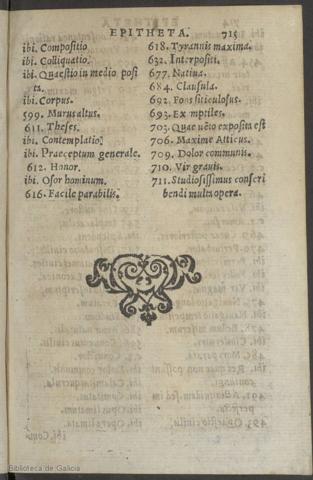 EPITHETA. 715
ibi. Compositio
ibi. Colliquatio.
ibi. Quæstio in medio posi
ta.
ibi. Corpus.
599. Murus altus.
611. Theses.
ibi. Contemplatio.
ibi. Praeceptum generale.
612. Honor.
ibi. Osor hominum.
616. Facile parabilis.
618. Tyrannis maxima.
632. Interpositi.
677. Natiua.
684. Clausula.
692. Fons siticulosus.
693. Exemptiles.
703. Quae vēto exposita est
706. Maxime Atticus.
709. Dolor communis.
710. Vir grauis.
711. Studiosissimus conscri
bendi multa opera.
Biblioteca de Galicia